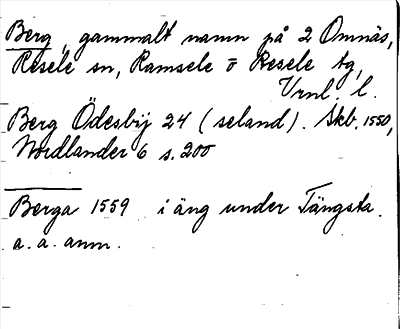 Berg, gammalt namn på 2 Omnäs,
Resele sn, Ramsele o Resele tg,
Vrnl. l.
Berg Ödesbÿ 24 (seland). Skb. 1550,
Nordlander 6 s. 200
Berga 1559 i äng under Tängsta.
a. a. anm.